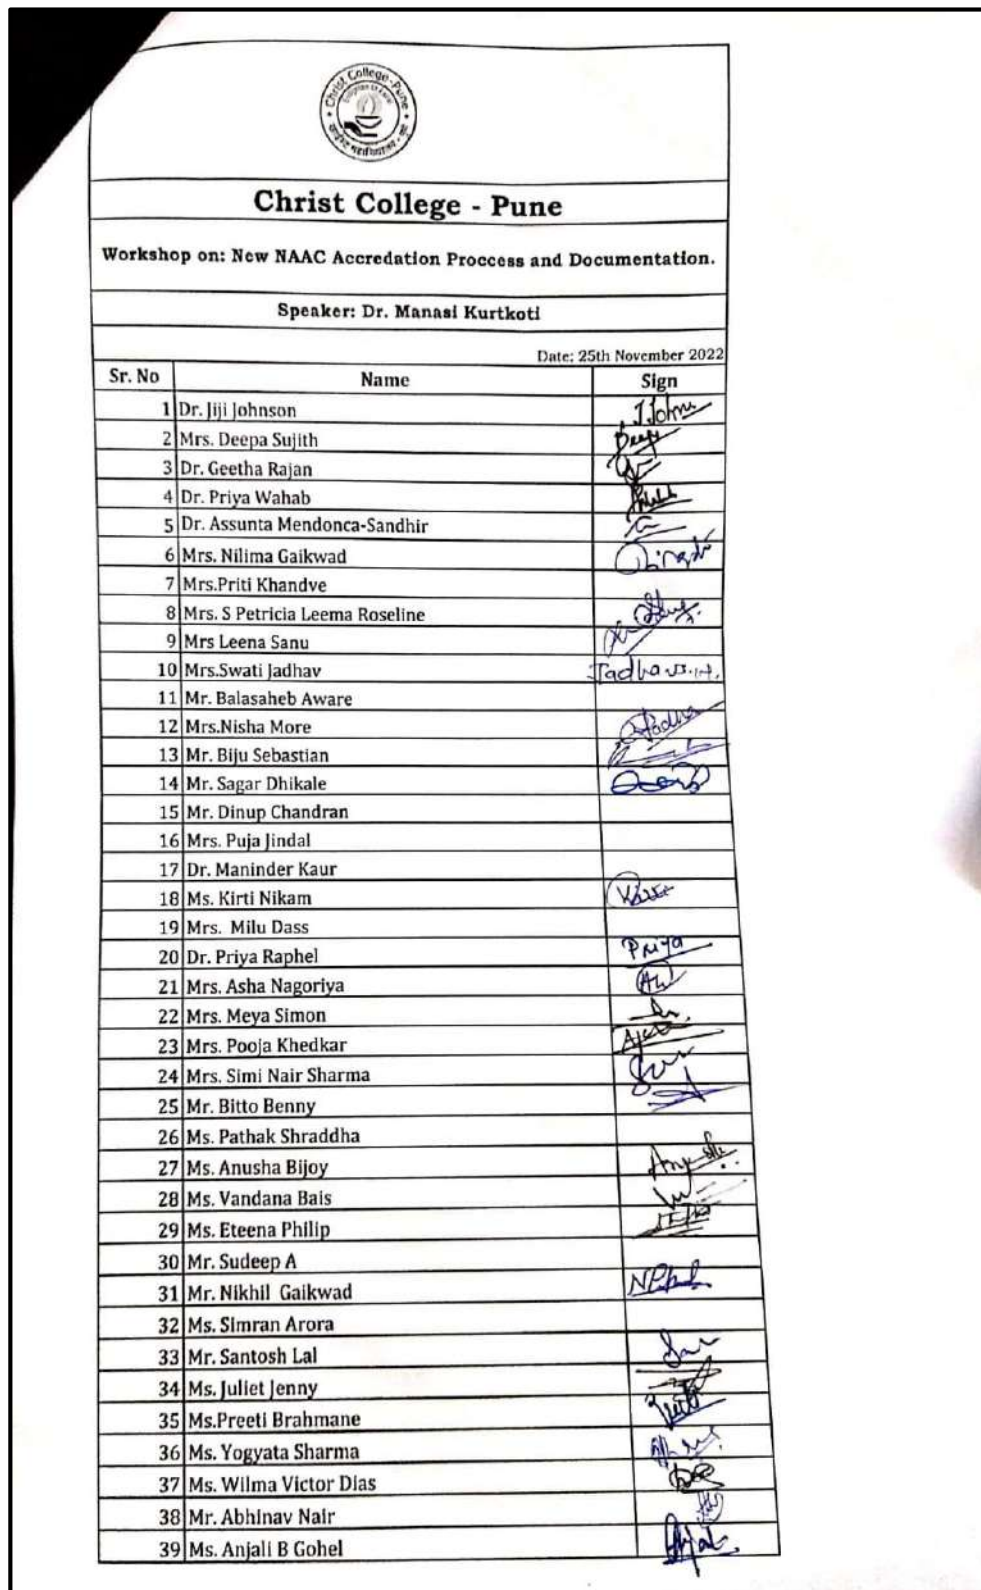 Christ College - Pune
Christ College - Pune
Workshop on: New NAAC Accredation Proccess and Documentation.
Speaker: Dr. Manasi Kurtkoti
Date: 25th November 2022
Sr. No Name Sign
1 Dr. Jiji Johnson J Johns
2 Mrs. Deepa Sujith
3 Dr. Geetha Rajan
4 Dr. Priya Wahab
5 Dr. Assunta Mendonca-Sandhir
6 Mrs. Nilima Gaikwad
7 Mrs.Priti Khandve
8 Mrs. S Petricia Leema Roseline
9 Mrs Leena Sanu
10 Mrs.Swati Jadhav
11 Mr. Balasaheb Aware
12 Mrs.Nisha More
13 Mr. Biju Sebastian
14 Mr. Sagar Dhikale
15 Mr. Dinup Chandran
16 Mrs. Puja Jindal
17 Dr. Maninder Kaur
18 Ms. Kirti Nikam
19 Mrs. Milu Dass
20 Dr. Priya Raphel Priya
21 Mrs. Asha Nagoriya
22 Mrs. Meya Simon
23 Mrs. Pooja Khedkar
24 Mrs. Simi Nair Sharma
25 Mr. Bitto Benny
26 Ms. Pathak Shraddha
27 Ms. Anusha Bijoy
28 Ms. Vandana Bais
29 Ms. Eteena Philip
30 Mr. Sudeep A
31 Mr. Nikhil Gaikwad
32 Ms. Simran Arora
33 Mr. Santosh Lal
34 Ms. Juliet Jenny
35 Ms.Preeti Brahmane
36 Ms. Yogyata Sharma
37 Ms. Wilma Victor Dias
38 Mr. Abhinav Nair
39 Ms. Anjali B Gohel